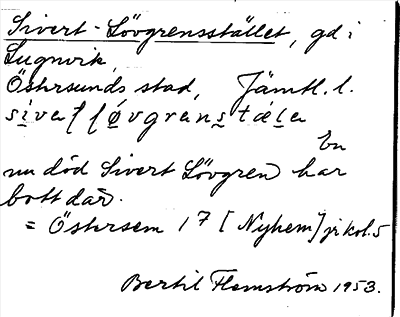 Sivert-Lövgrensstället, gd i
Lugnvik,
Östersunds stad, Jämtl. l.
En
nu död Sivert Lövgren har
bott där.
= Östersem 1⁷ [Nyhem] jr kol. 5
Bertil Flemström 1953.